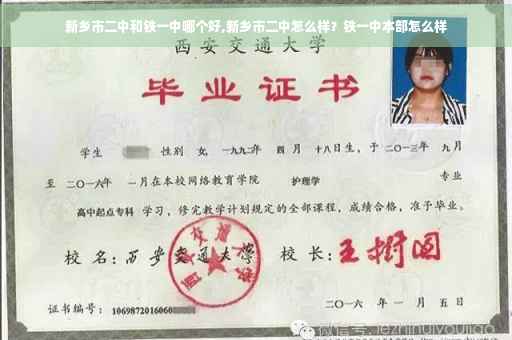 新乡市二中和铁一中哪个好,新乡市二中怎么样？铁一中本部怎么样
西安交通大学
毕业证书
学生 性别 女,一九九二年 四月 十八日生,于二〇一三年 九月
至 二〇一六年 一月在本校网络教育学院 护理学 专业
高中起点专科 学习，修完教学计划规定的全部课程，成绩合格，准予毕业。
校名：西安交通大学 校长：王树国
西安交通大学
证书编号：1069872016060 二〇一六年 一月 五日
微信号: jiezhihuiyoujiao